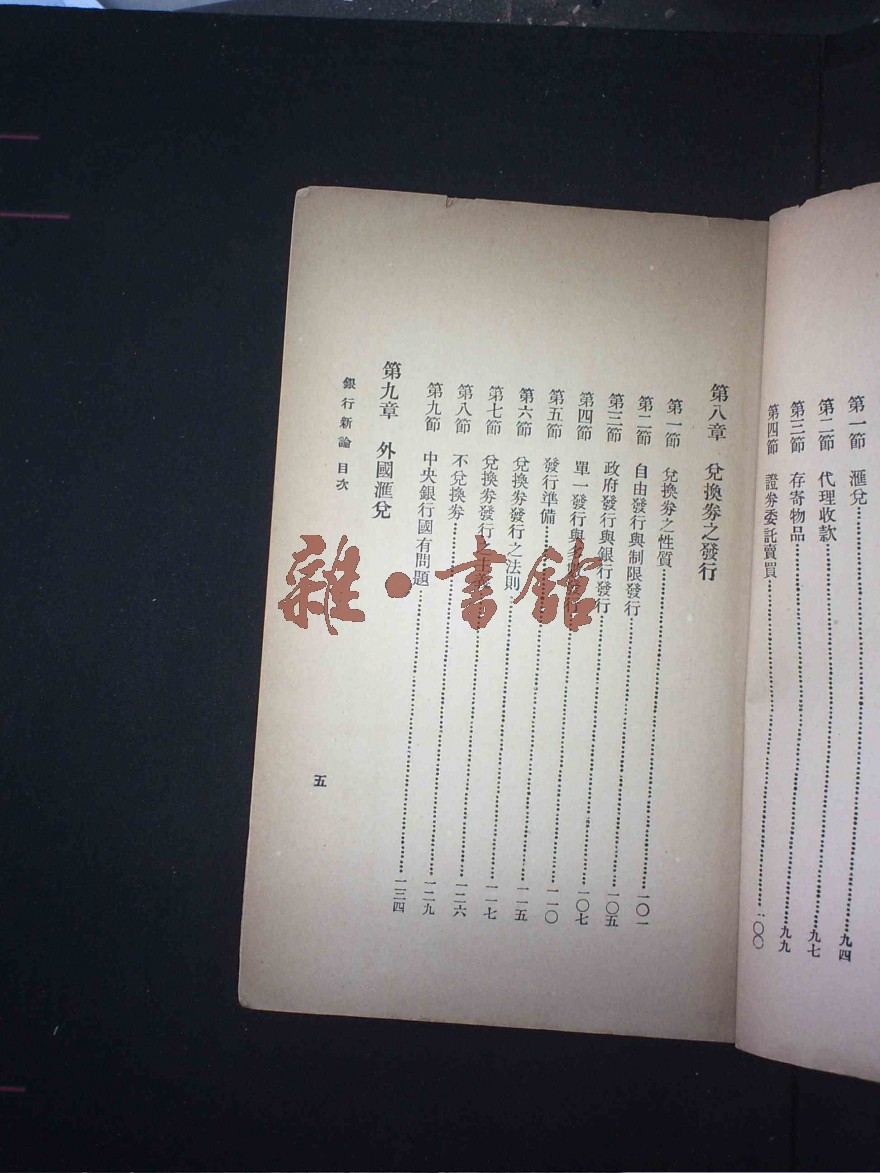 第一節 滙兌……………………九四
第二節 代理收款……………………九七
第三節 存寄物品……………………九九
第四節 證券委託賣買……………………一〇〇
第八章 兌換券之發行
第一節 兌換券之性質……………………一〇一
第二節 自由發行與制限發行……………………一〇五
第三節 政府發行與銀行發行……………………一〇七
第四節 單一發行與多發行……………………一一〇
第五節 發行準備……………………一一五
第六節 兌換券發行之法則……………………一一七
第七節 兌換券發行之主義……………………一二六
第八節 不兌換券……………………一二九
第九節 中央銀行國有問題……………………一三四
第九章 外國滙兌
銀行新論 目次
五
雜·書館